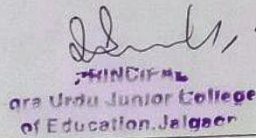 PRINCIPAL
ora Urdu Junior College
of Education, Jalgaon